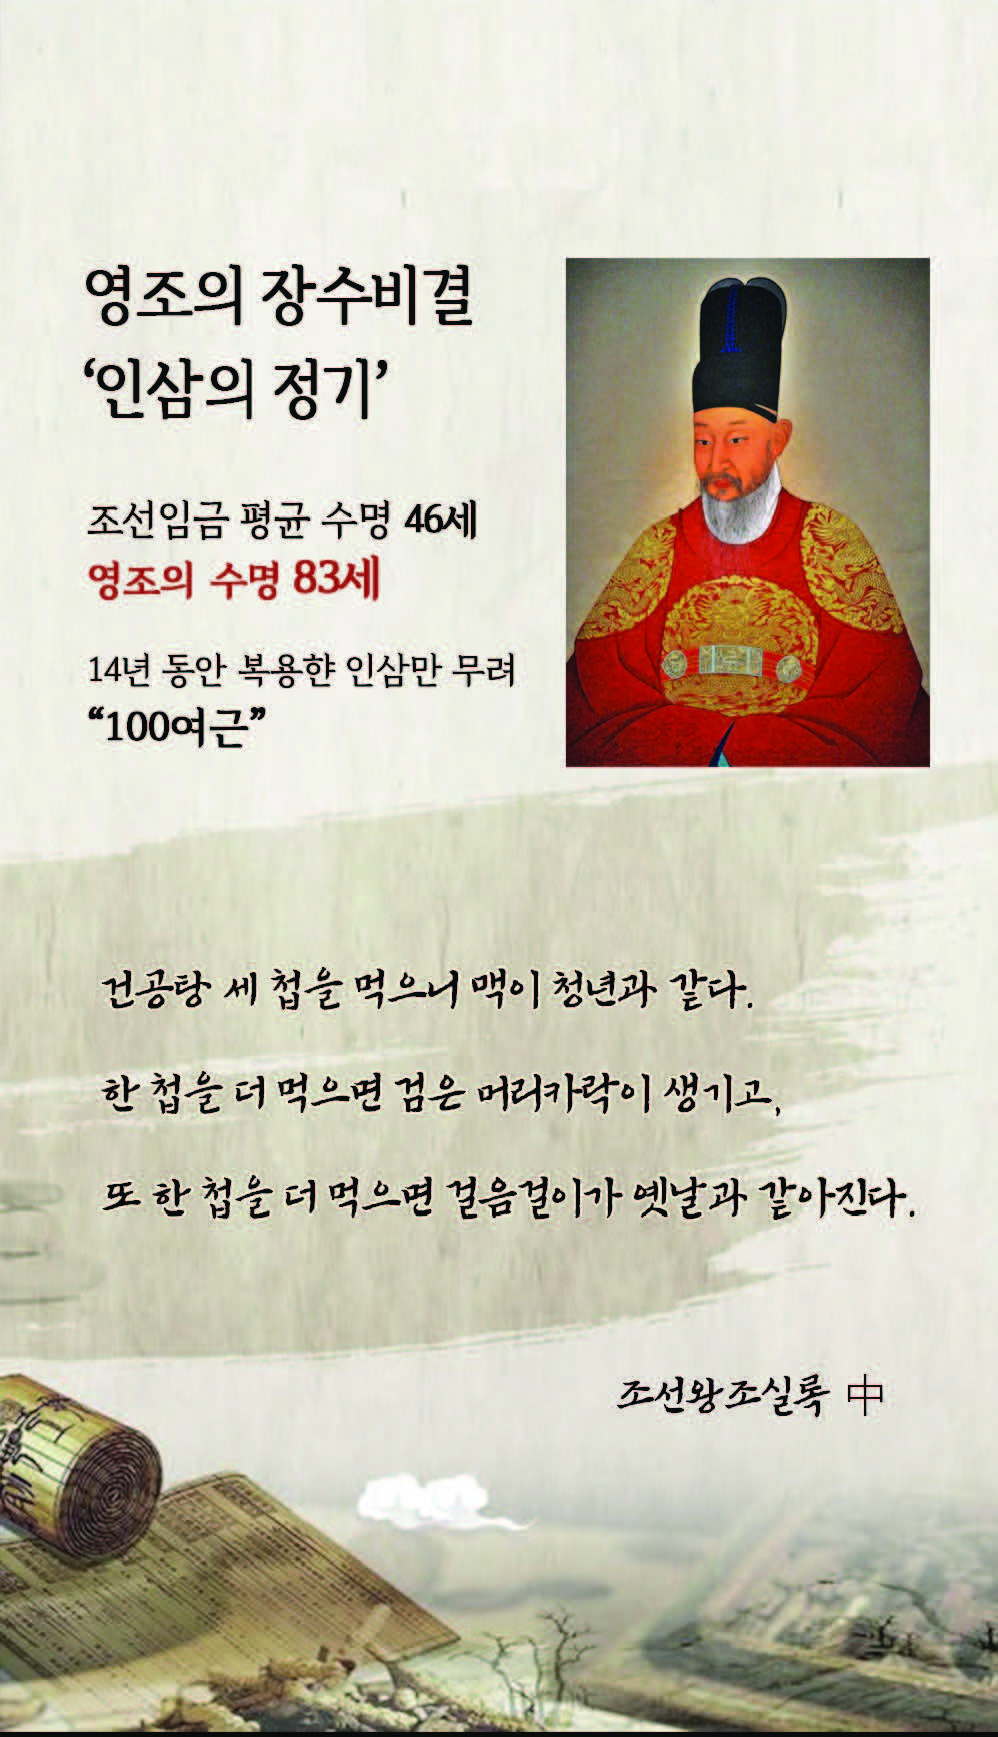 영조의 장수비결
‘인삼의 정기’
조선임금 평균 수명 46세
영조의 수명 83세
14년 동안 복용햔 인삼만 무려
“100여근”
건공탕 세 첩을 먹으니 맥이 청년과 같다.
한 첩을 더 먹으면 검은 머리카락이 생기고,
또 한 첩을 더 먹으면 걸음걸이가 옛날과 같아진다.
조선왕조실록 中